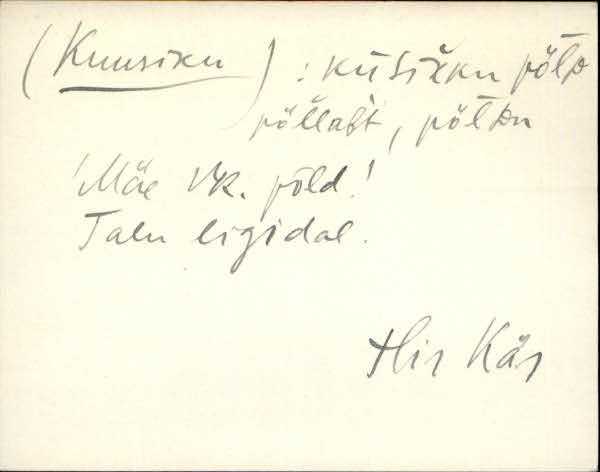 (Kuusiku) : kūsikku põlᴅ
põllaśt, põlᴅu
'Mäe vk. põld!
Talu ligidal.
His Käs